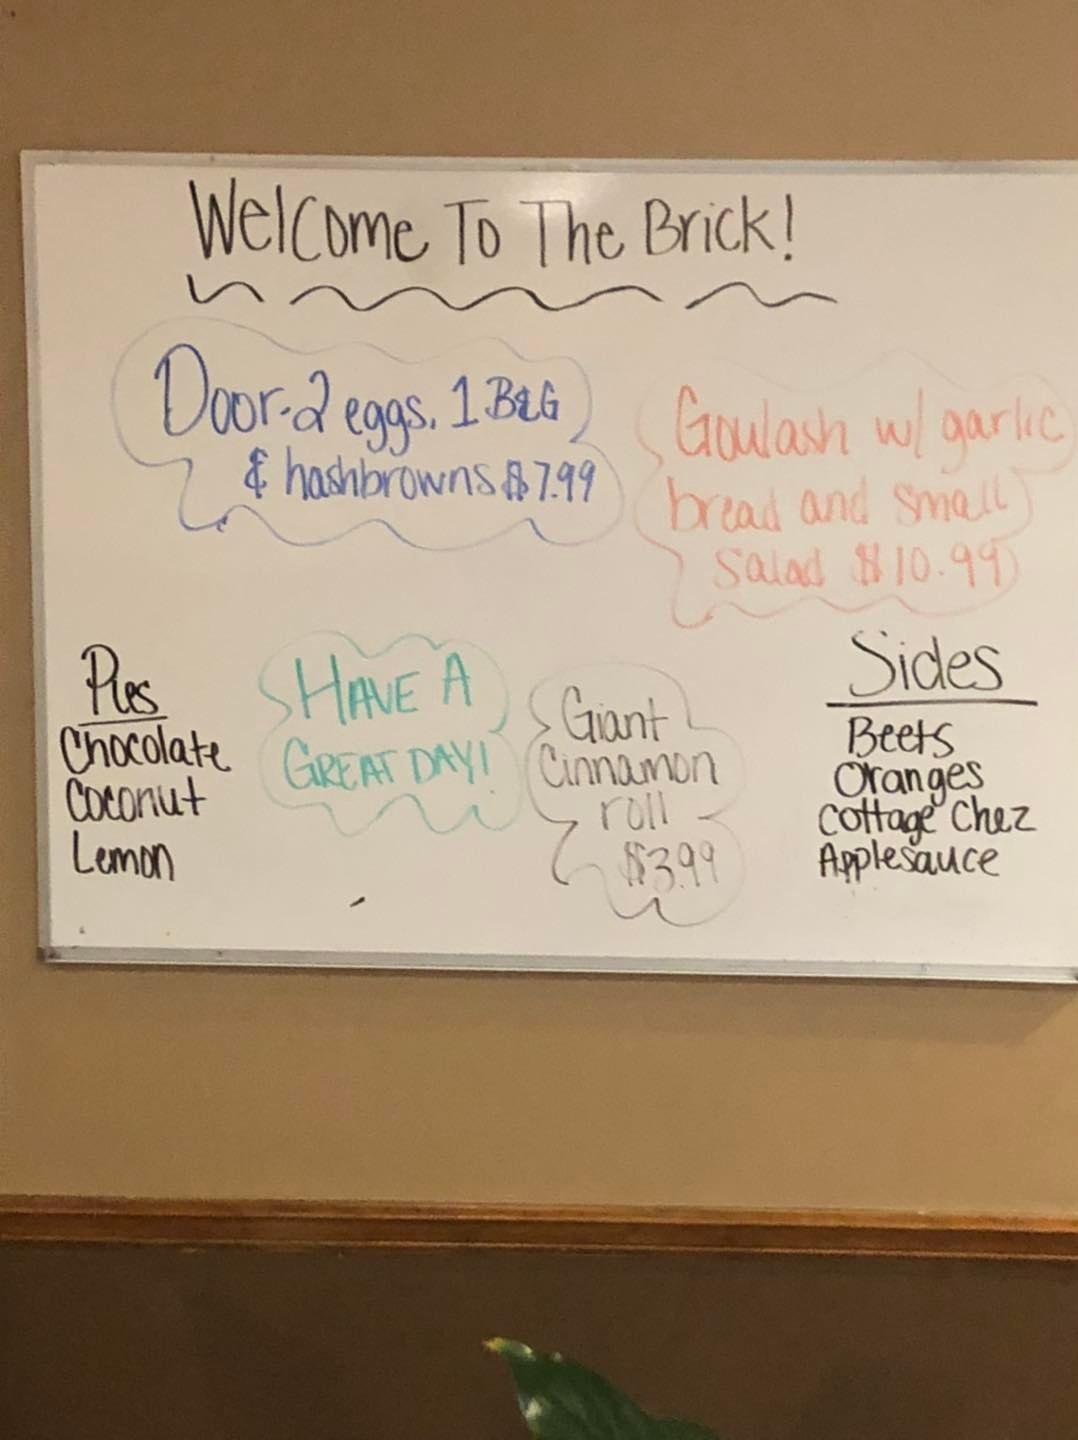 Welcome To The Brick!
Door-2 eggs, 1 B&G
& hashbrowns $7.99
Goulash w/ garlic
bread and small
salad $10.99
Pies
Chocolate
Coconut
Lemon
HAVE A
GREAT DAY!
Giant
Cinnamon
roll
$3.99
Sides
Beets
Oranges
Cottage Chez
Applesauce